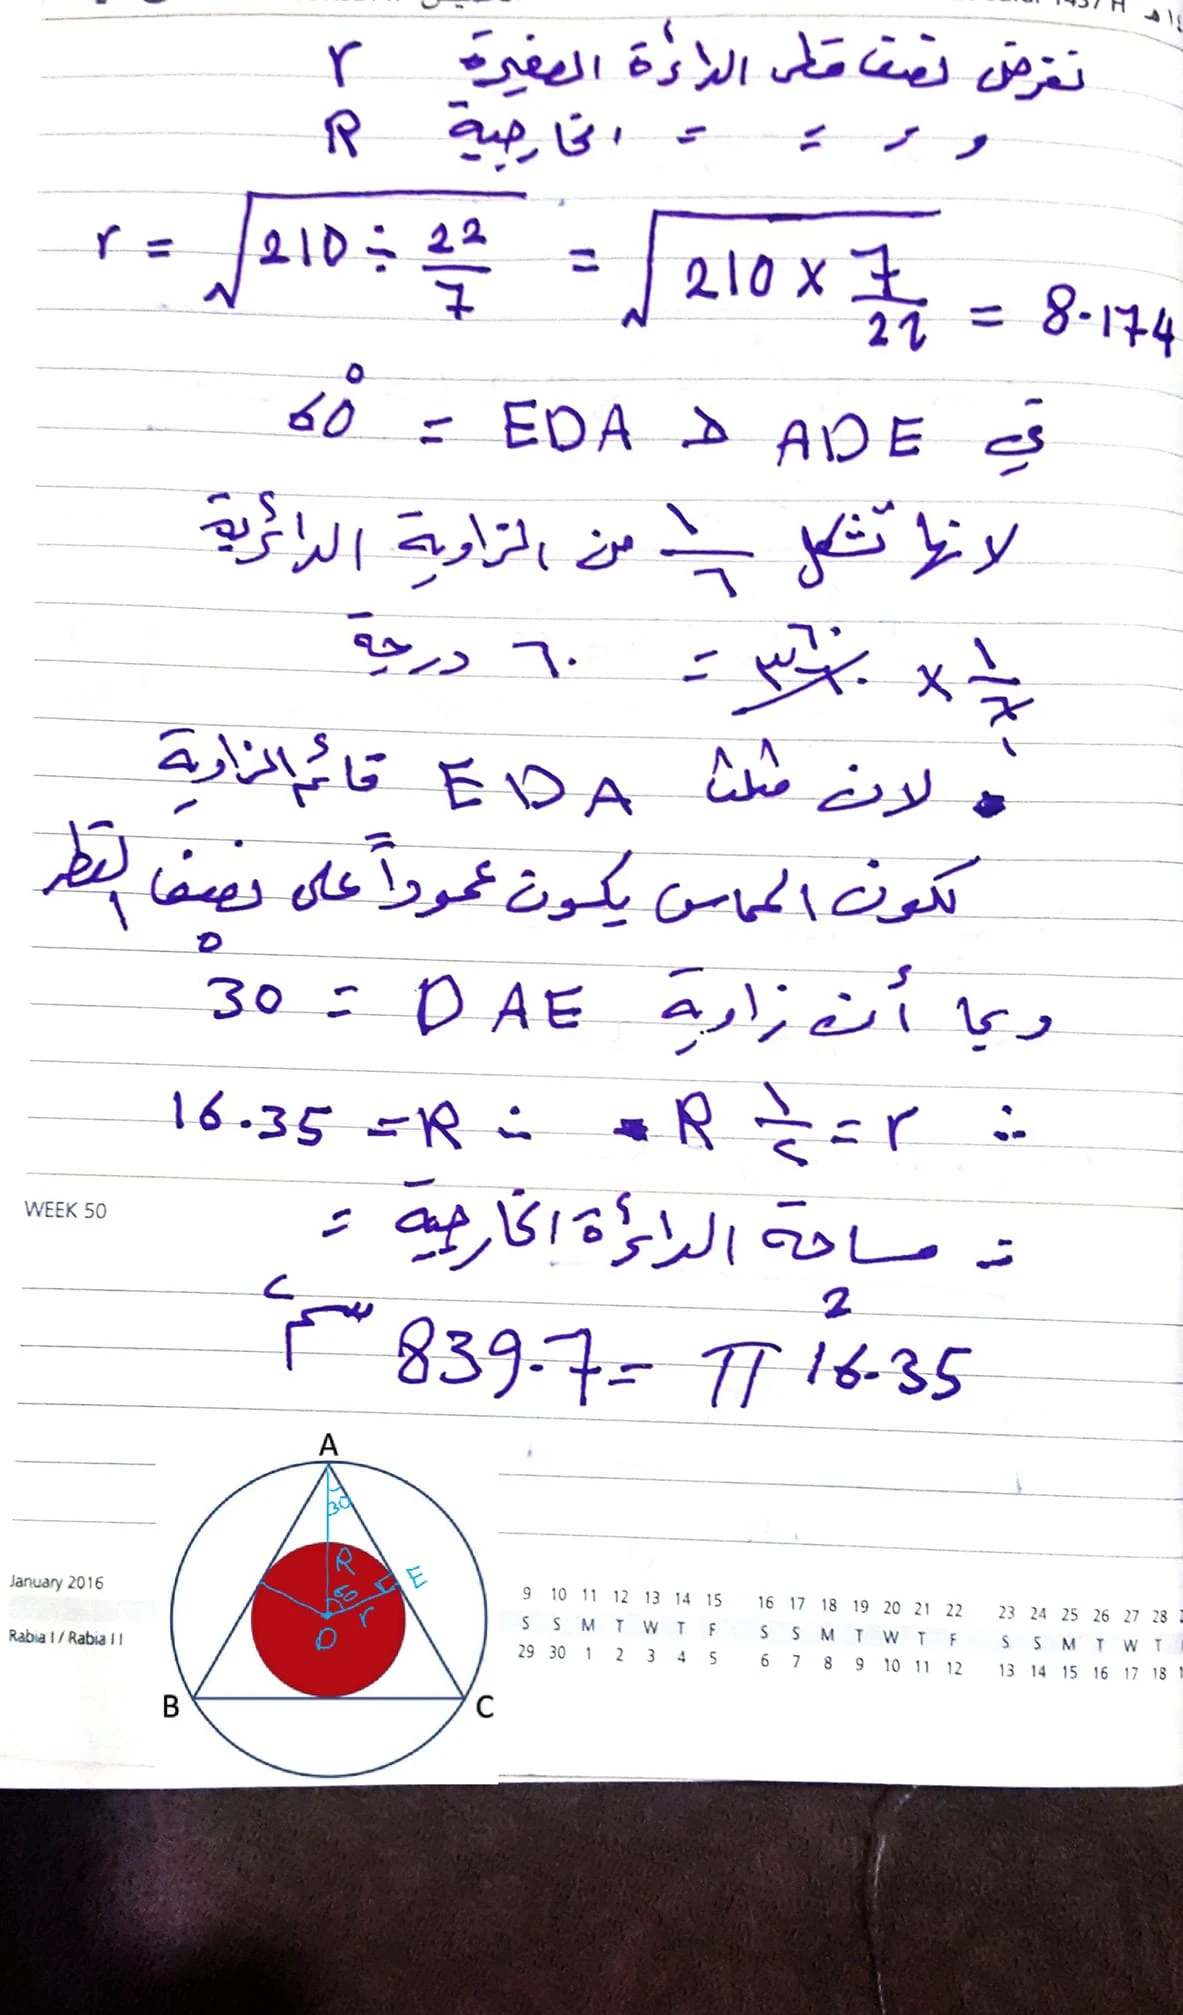 نفرض نصف قطر الدائرة الصغيرة r
و = = = الخارجية R
r = √210 ÷ 22/7 = √210 x 7/22 = 8.174
في ADE ⊿ EDA = 60°
لانها تشكل ١/٦ من الزاوية الدائرية
١/٦ x ٣٦٠ = ٦٠ درجة
لان مثلث EDA قائم الزاوية
لكون المماس يكون عموداً على نصف القطر
وبما أن زاوية DAE = 30°
∴ r = ١/٢ R ∴ R = 16.35
∴ مساحة الدائرة الخارجية =
16.35² π = 839.7 سم٢
WEEK 50
January 2016
Rabia I / Rabia II
A
30
R
E
60
r
D
B
C
9 10 11 12 13 14 15 16 17 18 19 20 21 22 23 24 25 26 27 28
S S M T W T F S S M T W T F S S M T W T
29 30 1 2 3 4 5 6 7 8 9 10 11 12 13 14 15 16 17 18